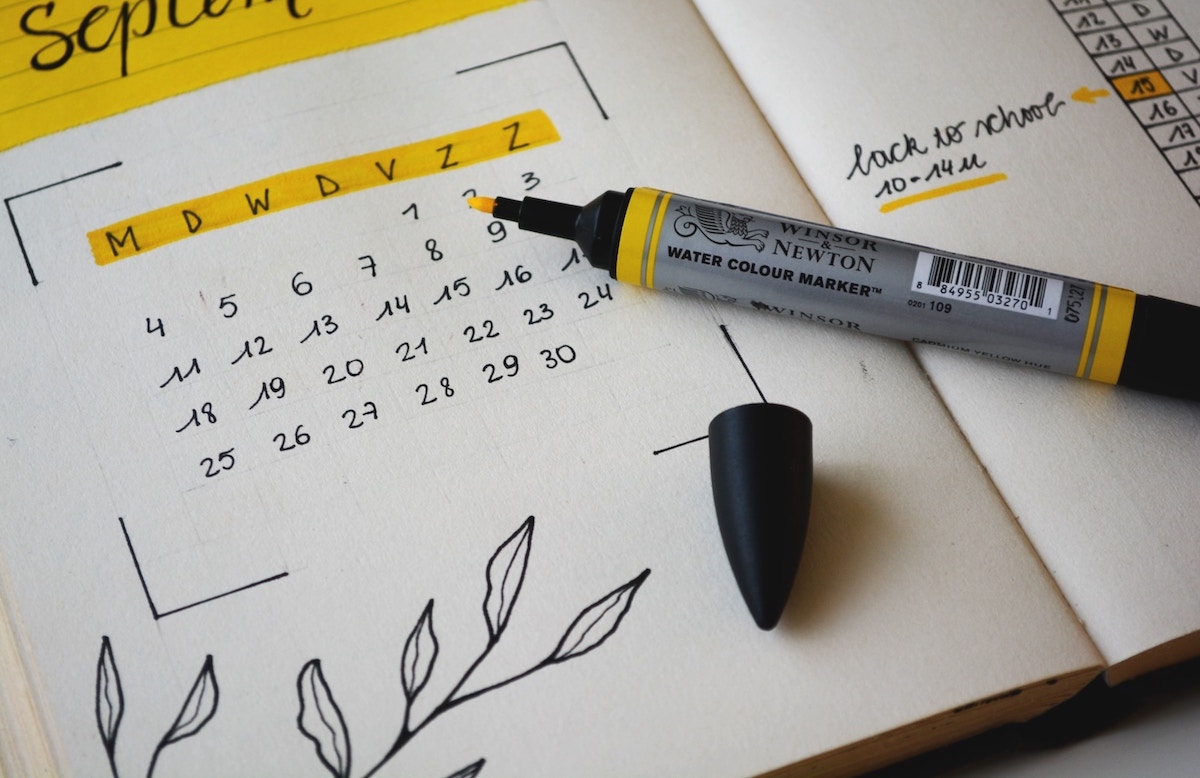 Septem
M D W D V Z Z
1 2 3
4 5 6 7 8 9
11 12 13 14 15 16
18 19 20 21 22 23 24
25 26 27 28 29 30
12 D
13 W
14 D
15 V
16
17
back to school
10-14u
WINSOR
&
NEWTON
WATER COLOUR MARKER™
WINSOR
8 84955 03270 1
0201 109
075127
CADMIUM YELLOW HUE